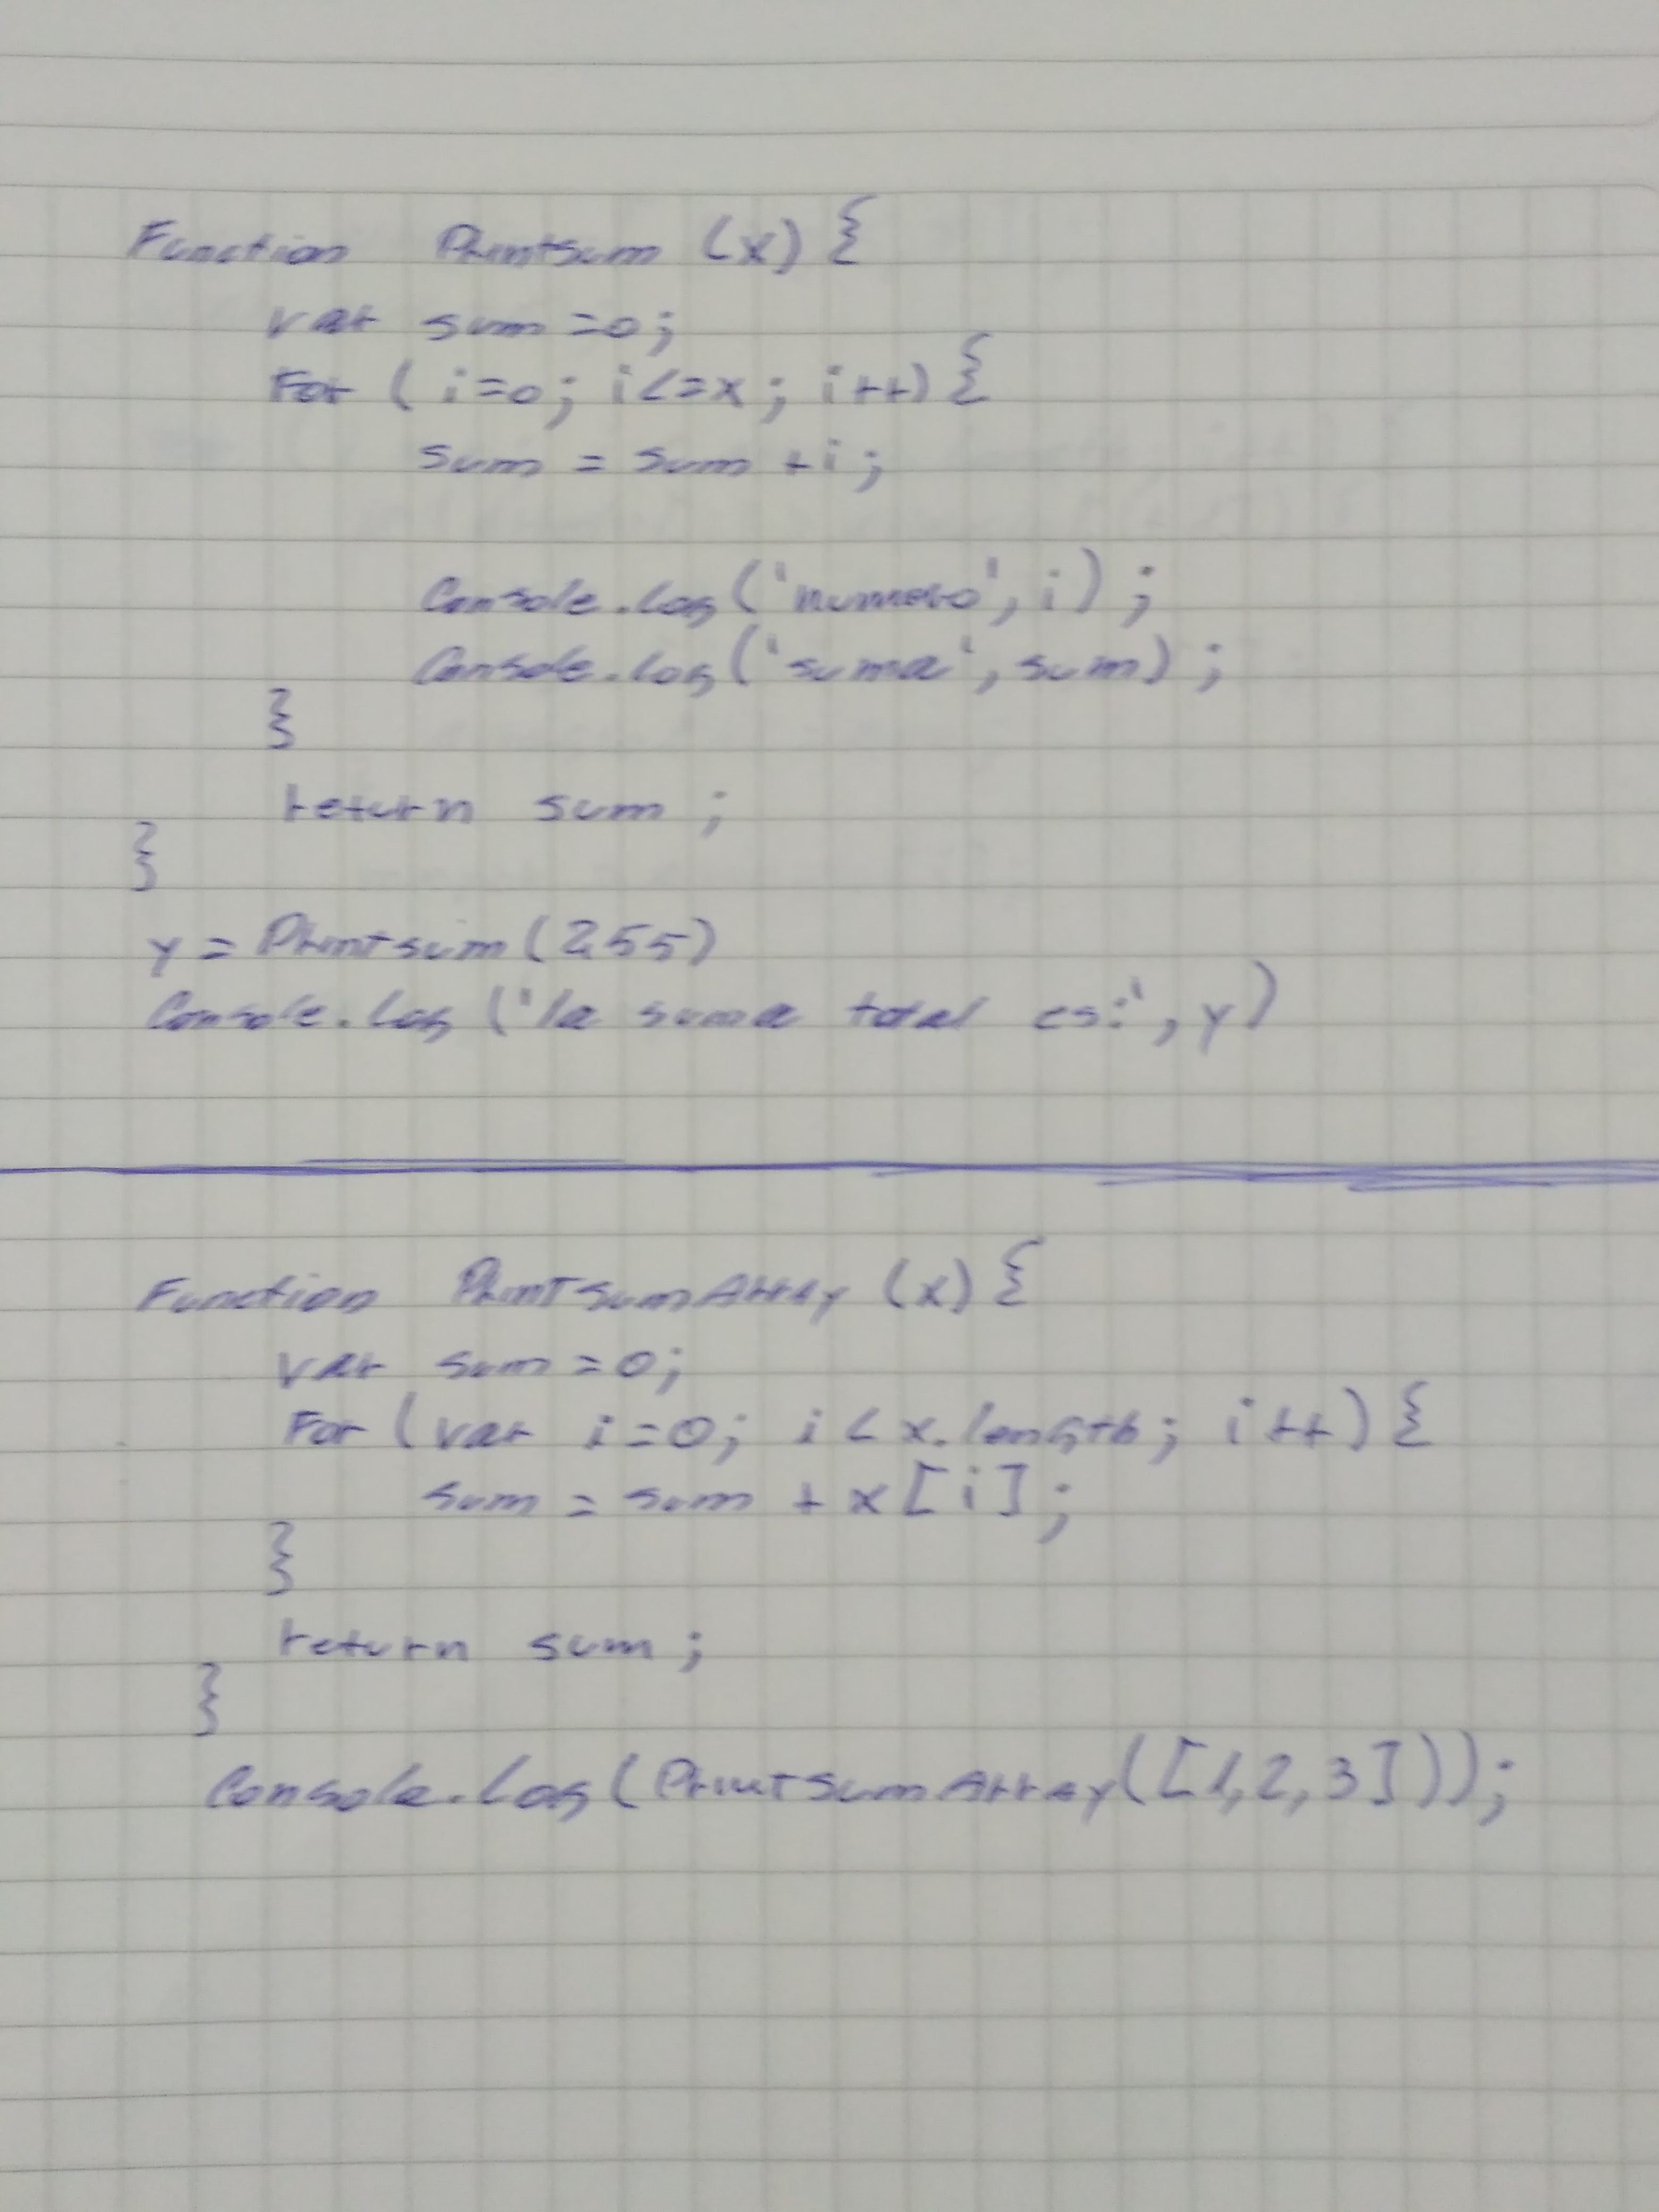 Function Printsum (x) {
var sum =0;
For ( i=0; i<=x; i++) {
sum = sum +i;
Console.log('numero', i);
Console.log('suma', sum);
}
return sum;
}
y = Printsum(255)
Console.Log ('la suma total es:', y)
Function PrintSumArray (x) {
var sum = 0;
For (var i=0; i < x.length; i++) {
sum = sum + x[i];
}
return sum;
}
Console.Log(PrintSumArray([1,2,3]));